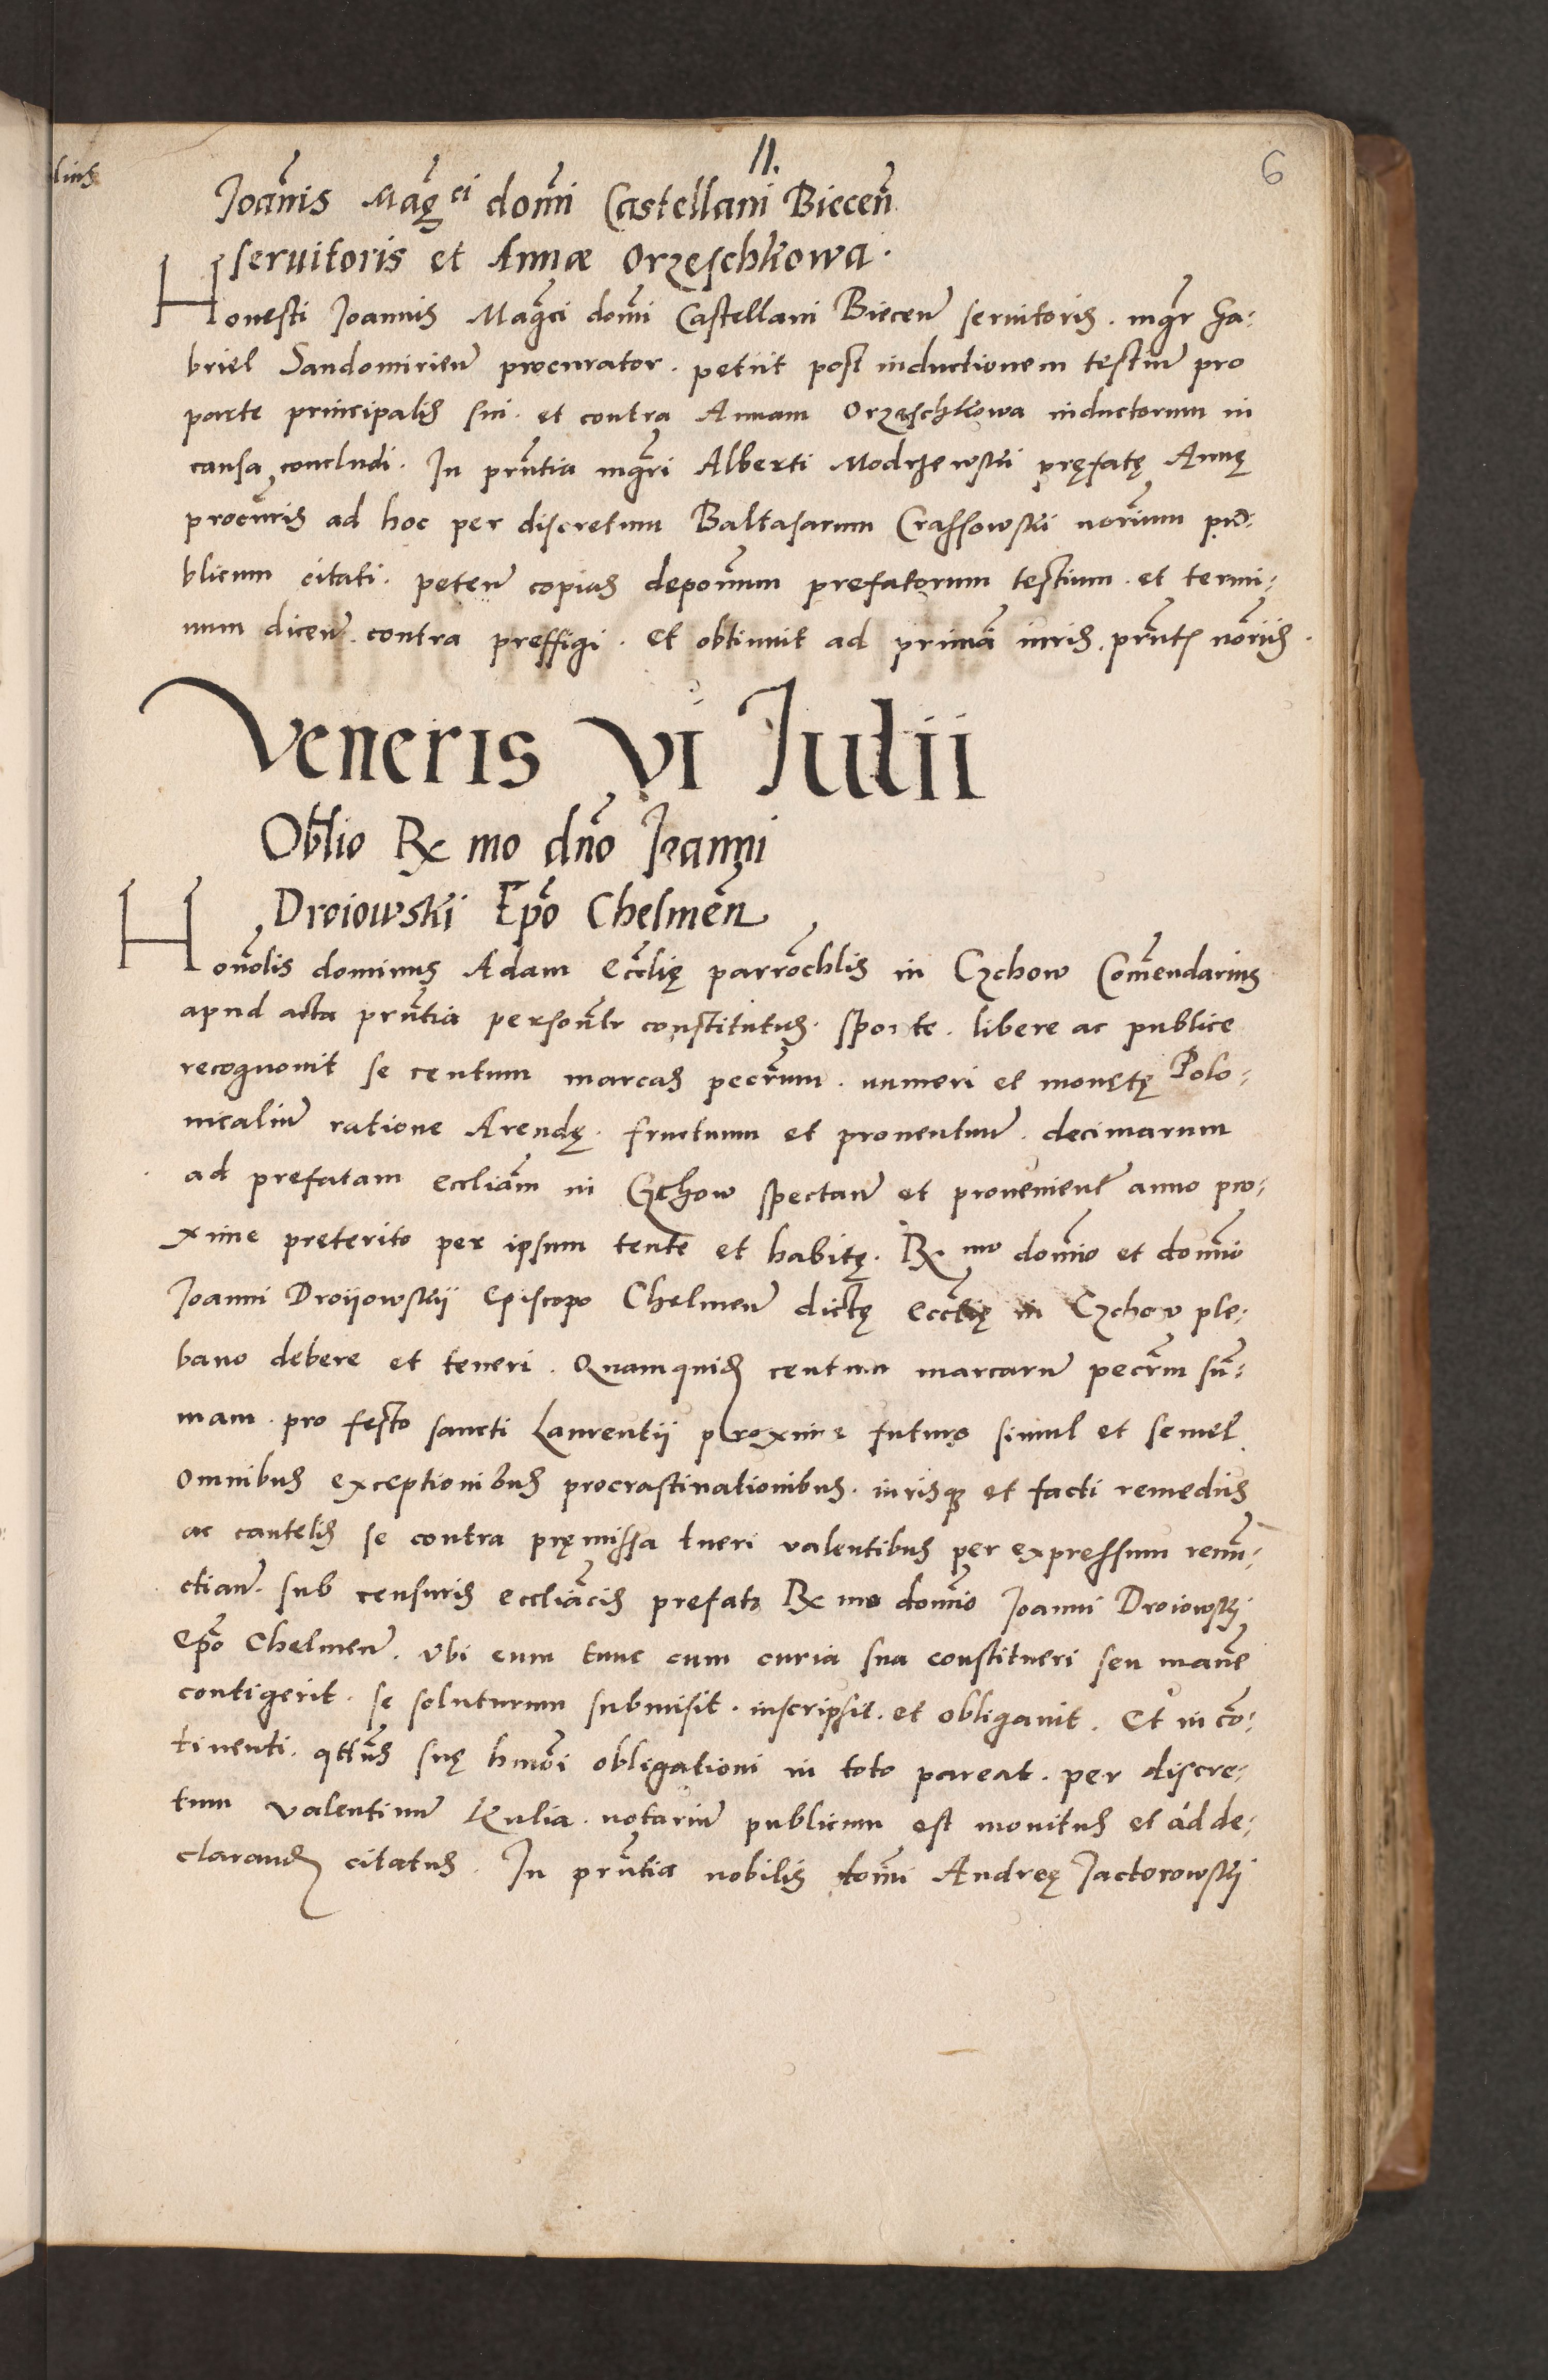 11.
6
Joañis Mag̃ci dom̃i Castellani Biecen̄
seruitoris et Annæ Orzeschkowa.
Honesti Joannis Mag̃ci dom̃i Castellani Biecen̄ seruitoris. mg̃r Ga-
briel Sandomirien̄ procurator. petiit post inductionem testiū pro
parte principalis sui. et contra Annam Orzeschkowa inductorum in
causa concludi. In pñtia mg̃ri Alberti Modrzewski pręfatę Annę
procũris ad hoc per discretum Baltasarum Crassowski noriũm pu-
blicum citati. peten̄ copias depoñum prefatorum testium. et termi-
num dicen̄. contra preffigi. Et obtinuit ad primã iuris. pñtƺ nõriis.
Veneris VI Julii
Oblio Rx mo dño Joanni
Droiowski Epõ Chelmen̄
Honõlis dominus Adam Eccl̃ię parrocħlis in Czchow Com̃endarius
apud acta pñtia personl̃r constitutus. sponte. libere ac publice
recognouit se centum marcas pecũrum. numeri et monetę Polo-
nicaliū ratione Arendę. fructuum et prouentuū. decimarum
ad prefatam eccliãm in Czchow spectan̄ et prouenien̄ anno pro-
xime preterito per ipsum tentę et habitę. Rx mo domĩo et domĩo
Joanni Droijowskij Episcopo Chelmen̄ dictę Eccl̃ię in Czchow ple-
bano debere et teneri. Quamquidƺ centum marcarū pecũm sũ-
mam. pro festo sancti Laurentij proxime futuro simul et semel
omnibus exceptionibus procrastinationibus. iurisqƺ et facti remediis
ac cautelis se contra pręmissa tueri valentibus per expressum renũ-
ctian̄. sub censuris eccliãcis prefato Rx mo domĩo Joanni Droiowski
Epõ Chelmen̄. Vbi eum tunc cum curia sua constitueri seu manẽ
contigerit. se soluturum submisit. inscripsit. et obligauit. Et in cõ-
tinenti. qtt̃us suę hmõi obligationi in toto pareat. per discre-
tum Valentinū Kulia. notariū publicum est monitus et ad de-
clarandƺ citatus. In pñtia nobilis dom̃i Andreę Jactorowski